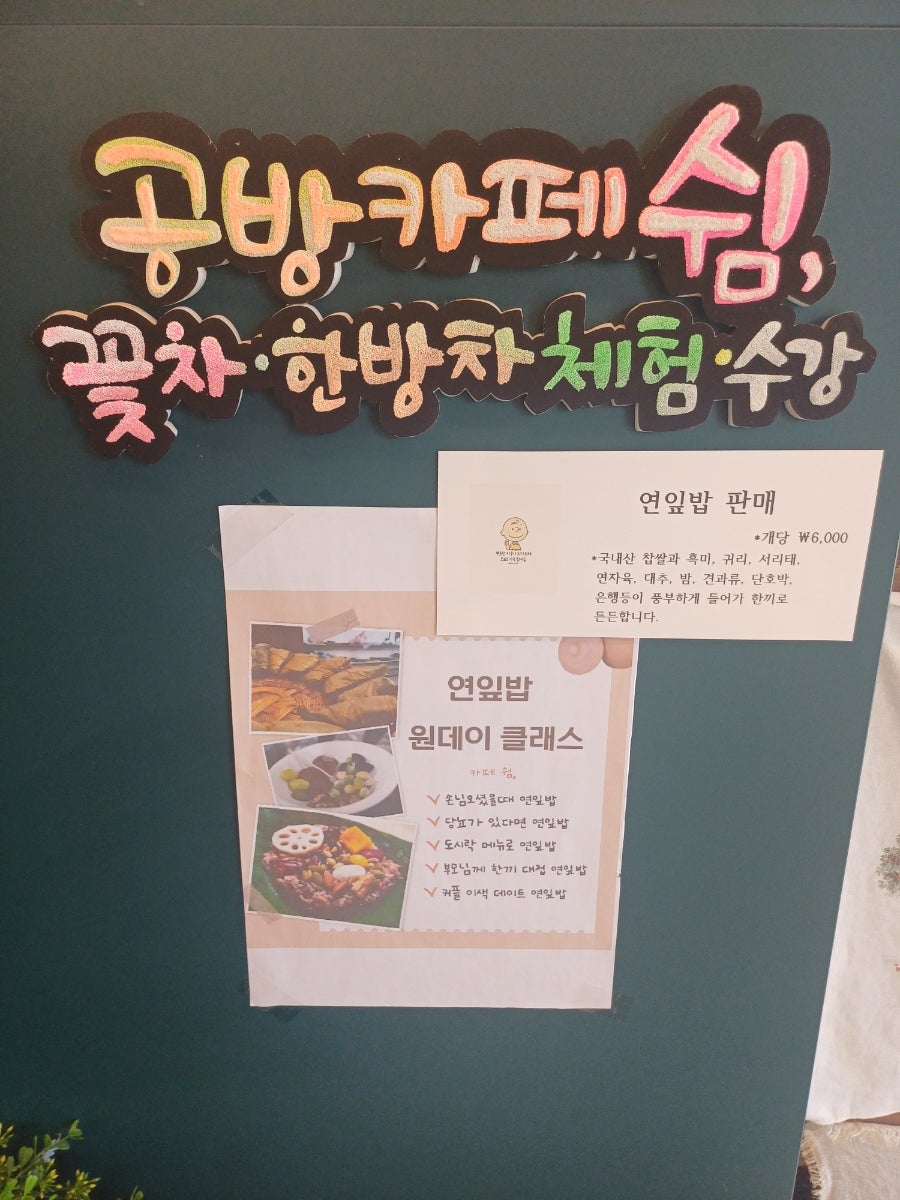 공방카페 쉼,
꽃차·한방차 체험·수강
연잎밥 판매
*개당 ₩6,000
*국내산 찹쌀과 흑미, 귀리, 서리태,
연자육, 대추, 밤, 견과류, 단호박,
은행등이 풍부하게 들어가 한끼로
든든합니다.
연잎밥
원데이 클래스
카페 쉼,
손님오셨을때 연잎밥
당뇨가 있다면 연잎밥
도시락 메뉴로 연잎밥
부모님께 한끼 대접 연잎밥
커플 이색 데이트 연잎밥